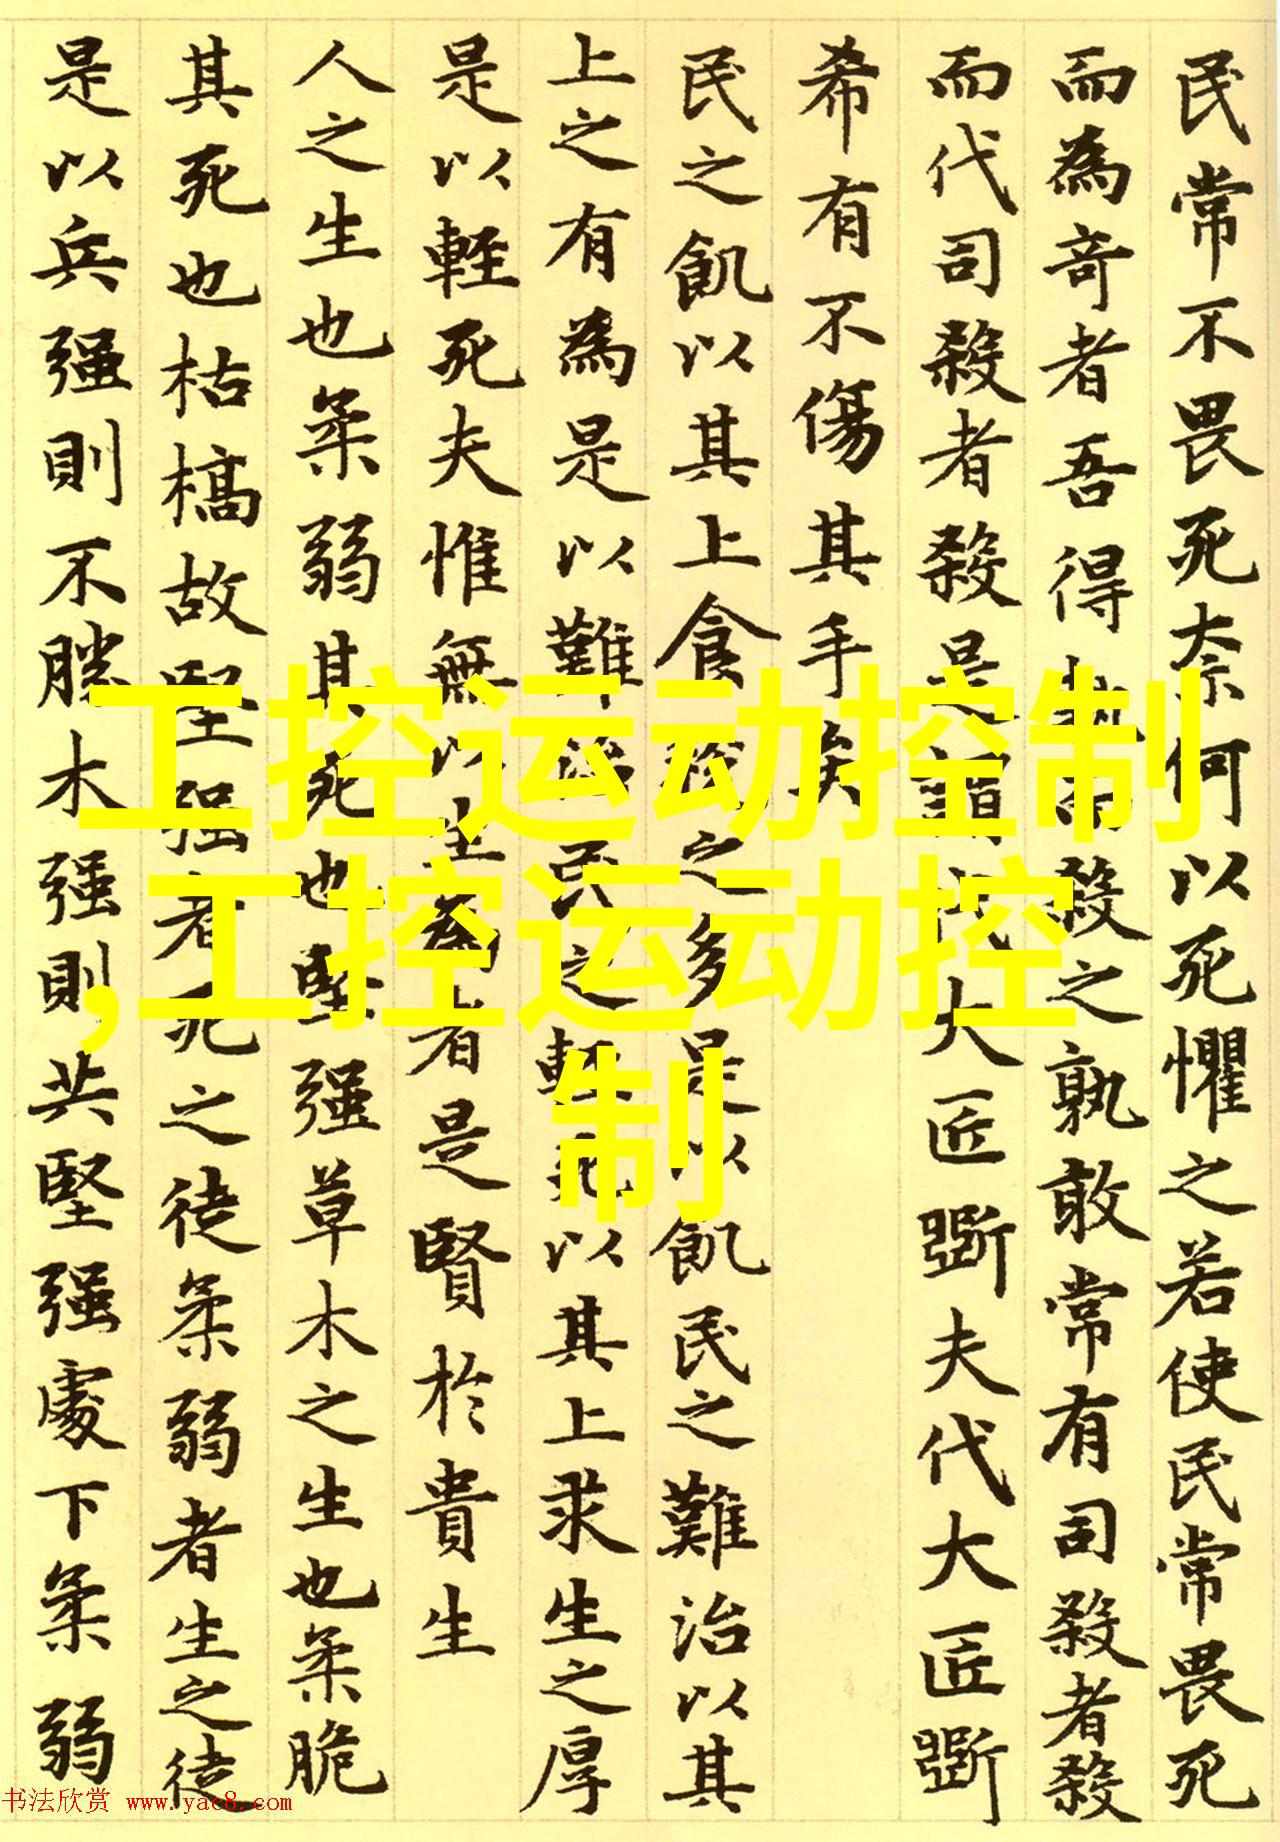 民常不畏死奈何以死懼之若使民常畏死
而為奇者吾得執而殺之孰敢常有司殺者殺
而代司殺者殺是謂代大匠斲夫代大匠斲
希有不傷其手矣
民之飢以其上食稅之多是以飢民之難治以其
上之有為是以難治民之輕死以其上求生之厚
是以輕死夫惟無以生為者是賢於貴生
人之生也柔弱其死也堅强草木之生也柔脆
其死也枯槁故堅强者死之徒柔弱者生之徒
是以兵强則不勝木强則共堅强處下柔弱
工控运动控制
,工控运动控
制
书法欣赏 www.yac8.com